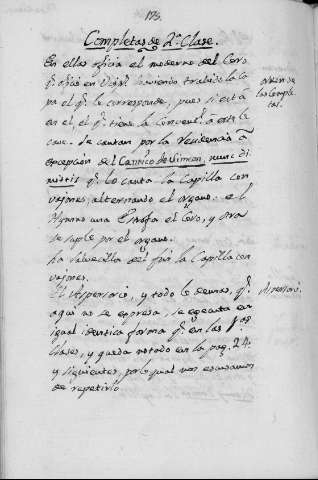 173.
Completas de 2.ª Clase.
En ellas oficia el moderno del Coro
q.e ofició en Visp.s haviendo trahido la Ca
pa el q.e le corresponde, pues si està
en el, el q.e tiene la
case. Se cantan por la Residencia à
excepcion del Cantico de Simeon, nunc di
mittis q.e lo canta la Capilla con
vajones, alternando el organo. el
Hymno una Estrofa el Coro, y otra
se suple por el organo.
La Salvecilla del fin la Capilla con
vajones.
El Aspersorio, y todo lo demas, q.e
aqui no se expresa, se egecuta en
igual identica forma q.e en las 1.as
Clases, y queda notado en la pag. 24.
y siguientes, por lo qual nos escusamos
de repetirlo.
orden de
las Comple
tas.
Aspersorio.